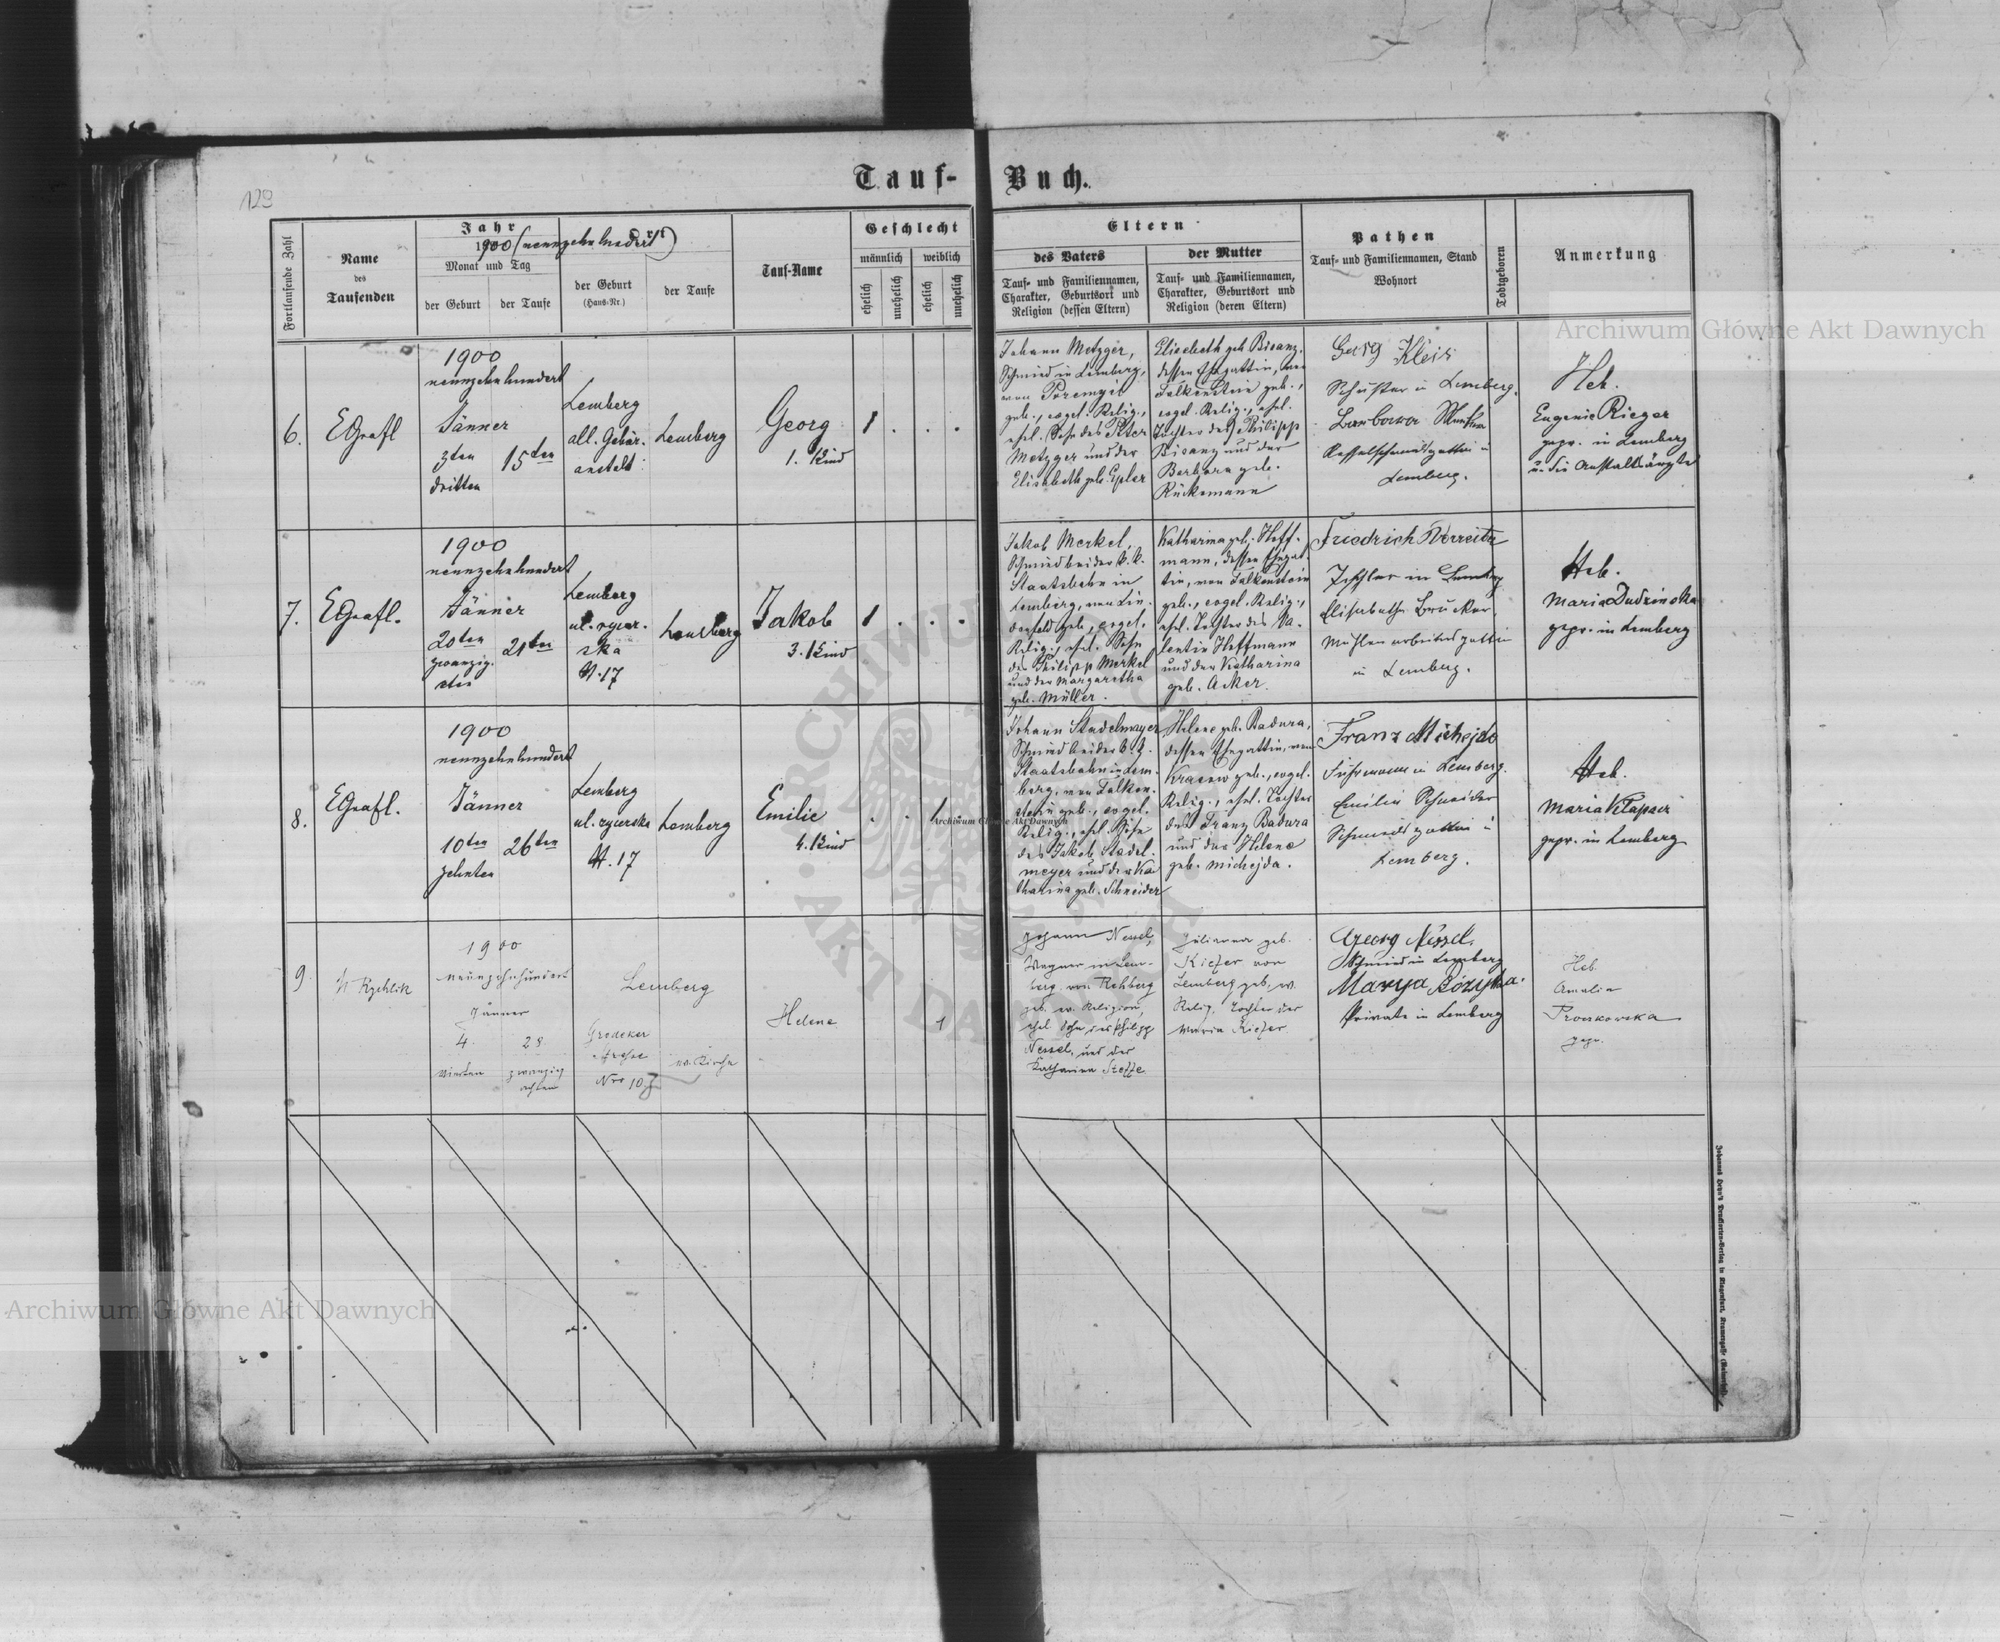 129
Tauf- Buch.
Fortlaufende Zahl
Name
des
Taufenden
Jahr
1900 (neunzehnhundert)
Monat und Tag
der Geburt
der Taufe
der Geburt
(Haus-Nr.)
der Taufe
Tauf-Name
Geschlecht
männlich
weiblich
ehelich
unehelich
ehelich
unehelich
Eltern
des Vaters
Tauf- und Familiennamen,
Charakter, Geburtsort und
Religion (dessen Eltern)
der Mutter
Tauf- und Familiennamen,
Charakter, Geburtsort und
Religion (deren Eltern)
Pathen
Tauf- und Familiennamen, Stand
Wohnort
Todtgeboren
Anmerkung
6.
EGrafl
1900
neunzehnhundert
Jänner
3ten
dritten
15ten
Lemberg
all. Gebär.
anstalt
Lemberg
Georg
1. Kind
1 . . .
Johann Metzger,
Schmied in Lemberg,
von
geb., evgel. Relig.,
ehel. Sohn des Peter
Metzger und der
Elisabeth geb.
Elisabeth geb. Bisanz,
dessen Ehegattin, von
Falkenstein geb.,
evgel. Relig., ehel.
Tochter des Philipp
Bisanz und der
Barbara geb.
Rückemann
Georg Klein
Schuster in Lemberg.
Barbara
Kesselschmiedsgattin in
Lemberg.
Heb.
Eugenie Rieger
gepr. in Lemberg
u. die Anstaltsärzte
7.
EGrafl.
1900
neunzehnhundert
Jänner
20ten
zwanzig-
sten
21ten
Lemberg
ul. rycer-
ska
N. 17
Lemberg
Jakob
3. Kind
1 . . .
Jakob Merkel,
Schmied bei der k. k.
Staatsbahn in
Lemberg, von Lin-
denfeld geb., evgel.
Relig., ehel. Sohn
des Philipp Merkel
und der Margaretha
geb. Müller.
Katharina geb. Hoff-
mann, dessen Ehegat-
tin, von Falkenstein
geb., evgel. Relig.,
ehel. Tochter des Va-
lentin Hoffmann
und der Katharina
geb. Acker.
Friedrich
Tischler in Lemberg
Elisabeth Brucker,
Mühlenarbeitersgattin
in Lemberg.
Heb.
Maria Dudzinska
gepr. in Lemberg
8.
EGrafl.
1900
neunzehnhundert
Jänner
10ten
zehnten
26ten
Lemberg
ul. rycerska
N. 17
Lemberg
Emilie
4. Kind
. . 1
Johann Stadelmayer
Schmied bei der k. k.
Staatsbahn in Lem-
berg, von Falken-
stein geb., evgel.
Relig., ehel. Sohn
des Jakob Stadel-
meyer und der Ka-
tharina geb. Schneider
Helene geb. Badura,
dessen Ehegattin, von
geb., evgel.
Relig., ehel. Tochter
des Franz Badura
und der Helene
geb. Michejda.
Franz Michejda
Fuhrmann in Lemberg.
Emilie Schneider
Schmiedsgattin in
Lemberg.
Heb.
Maria
gepr. in Lemberg
9
1900
neunzehnhundert
Jänner
4.
vierten
28.
zwanzig
achten
Lemberg
Grodeker
strasse
Nro 107
ev. Kirche
Helene
1
Johann Nessel,
Wagner in Lem-
berg, von Rehberg
geb. ev. Religion,
ehel. Sohn des Philipp
Nessel, und der
Katharina
Julianna geb.
Kiefer von
Lemberg geb. ev.
Relig. Tochter der
Maria Kiefer
Georg Nessel.
Schmied in Lemberg
Marya Różycka.
Private in Lemberg
Heb.
Amalia
gepr.
Archiwum Główne Akt Dawnych
Archiwum Główne Akt Dawnych
Archiwum Główne Akt Dawnych
ARCHIWUM
AKT DAWNYCH